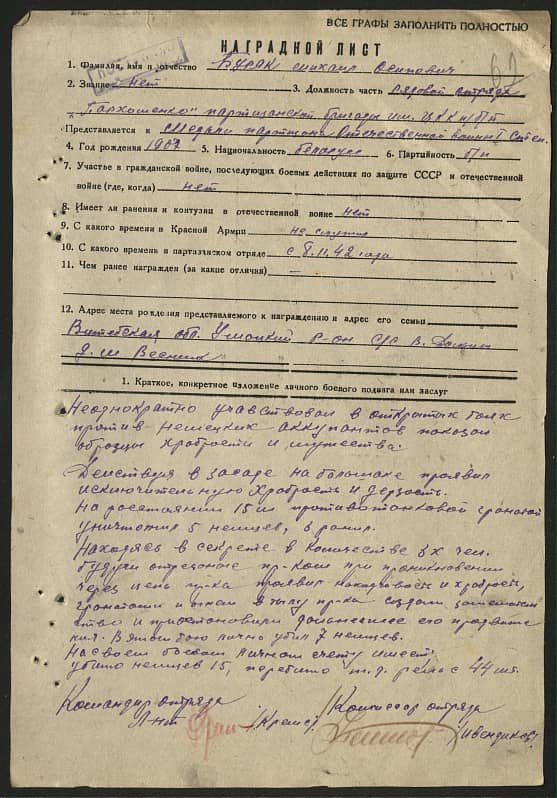 ВСЕ ГРАФЫ ЗАПОЛНИТЬ ПОЛНОСТЬЮ
НАГРАДНОЙ ЛИСТ
1. Фамилия, имя и отчество Бусак михаил Осипович
2. Звание нет 3. Должность часть Рядовой отряда
"Пархоменко" партизанской бригады им. ЦК КП/б/Б
Представляется к Медали партизану Отечественной войны I степ.
4. Год рождения 5. Национальность беларус 6. Партийность б/п
7. Участье в гражданской войне, последующих боевых действиях по защите СССР и отечественной
войне (где, когда) нет
8. Имеет ли ранения и контузии в отечественной войне нет
9. С какого времени в Красной Армии не служил
10. С какого времени в партазанском отряде с 8.11.42 года
11. Чем ранее награжден (за какие отличия) —
12. Адрес места рождения представляемого к награждению и адрес его семьи
Витебская обл. Ушацкий р-он с/с В.
д.
1. Краткое, конкретное изложение личного боевого подвига или заслуг
Неоднократно учавствовал в открытых боях
против немецких аккупантов показал
образцы храбрости и мужества.
Действуя в засаде на большаке проявил
исключительную храбрость и дерзость.
На росстоянии 15 м противотанковой гранатой
уничтожил 5 немцев, 3 ранил.
Находясь в секрете в количестве 3х чел.
будучи отрезаные пр-ком при проникновении
через цепь пр-ка проявил находчивость и храбрость,
гранатами и огнем в тылу пр-ка создали замешатель
ство и приостановили дальнейшее его продвиже
ния. В этом бою лично убил 7 немцев.
На своем боевом личном счету имеет:
убито немцев 15, перебито ж.д. рельс 44 шт.
Командир отряда Комиссар отряда
Л-нт